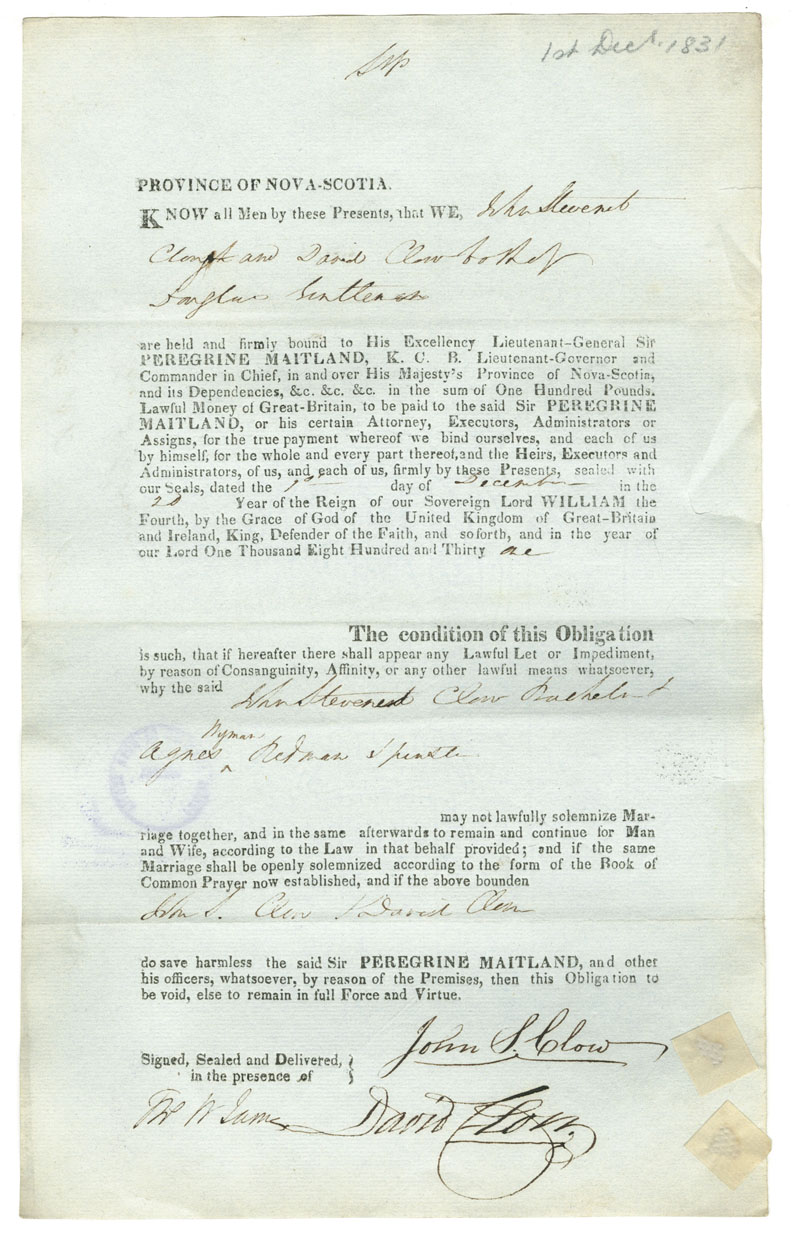 1st Decr. 1831
PROVINCE OF NOVA-SCOTIA.
KNOW all Men by these Presents, that WE, John Stevenet
Clow and David Clow both of
Douglas Gentlemen
are held and firmly bound to His Excellency Lieutenant-General Sir
PEREGRINE MAITLAND, K. C. B. Lieutenant-Governor and
Commander in Chief, in and over His Majesty's Province of Nova-Scotia,
and its Dependencies, &c. &c. &c. in the sum of One Hundred Pounds.
Lawful Money of Great-Britain, to be paid to the said Sir PEREGRINE
MAITLAND, or his certain Attorney, Executors, Administrators or
Assigns, for the true payment whereof we bind ourselves, and each of us
by himself, for the whole and every part thereof, and the Heirs, Executors and
Administrators, of us, and each of us, firmly by these Presents, sealed with
our Seals, dated the 1st day of December in the
2d Year of the Reign of our Sovereign Lord WILLIAM the
Fourth, by the Grace of God of the United Kingdom of Great-Britain
and Ireland, King, Defender of the Faith, and soforth, and in the year of
our Lord One Thousand Eight Hundred and Thirty one
The condition of this Obligation
is such, that if hereafter there shall appear any Lawful Let or Impediment,
by reason of Consanguinity, Affinity, or any other lawful means whatsoever,
why the said John Stevenet Clow Bachelor &
Agnes Wyman Redman Spinster
may not lawfully solemnize Mar-
riage together, and in the same afterwards to remain and continue for Man
and Wife, according to the Law in that behalf provided; and if the same
Marriage shall be openly solemnized according to the form of the Book of
Common Prayer now established, and if the above bounden
John S. Clow & David Clow
do save harmless the said Sir PEREGRINE MAITLAND, and other
his officers, whatsoever, by reason of the Premises, then this Obligation to
be void, else to remain in full Force and Virtue.
John S. Clow
Signed, Sealed and Delivered,
in the presence of
David Clow.